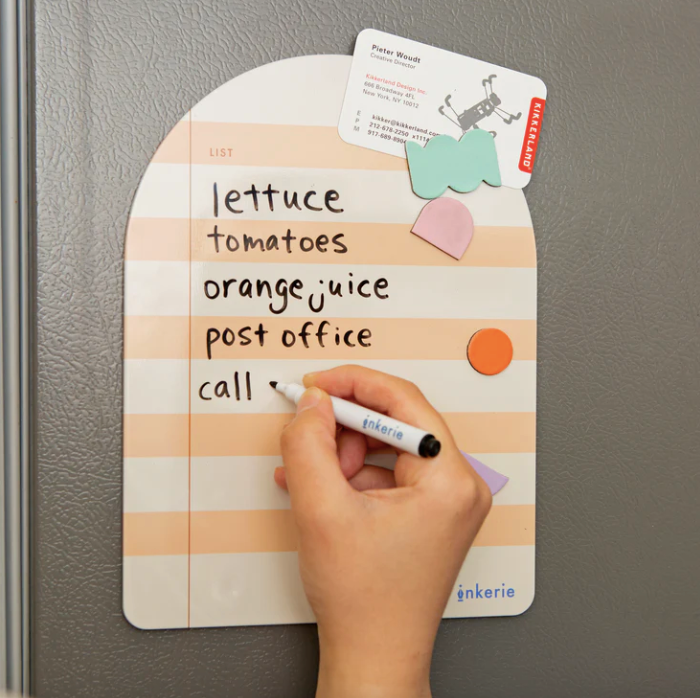 Pieter Woudt
Creative Director
Kikkerland Design Inc.
New York, NY 10012
E kikker@kikkerland.com
P 212-678-2250
M
KIKKERLAND
LIST
lettuce
tomatoes
orange juice
post office
call
inkerie
inkerie